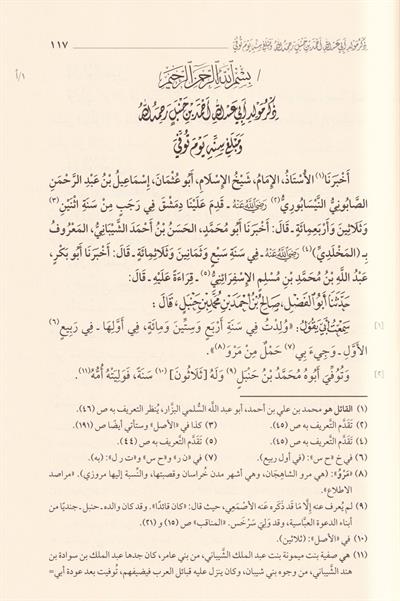 ذِكْرُ مَوْلِدِ أَبِي عَبْدِ اللهِ أَحْمَدَ بْنِ حَنْبَلٍ رَحِمَهُ اللهُ وَمَبْلَغِ سِنِّهِ يَوْمَ تُوُفِّيَ
١١٧
١/أ
/ بِسْمِ اللَّهِ الرَّحْمَنِ الرَّحِيمِ
ذِكْرُ مَوْلِدِ أَبِي عَبْدِ اللهِ أَحْمَدَ بْنِ حَنْبَلٍ رَحِمَهُ اللهُ
وَمَبْلَغِ سِنِّهِ يَوْمَ تُوُفِّيَ
أَخْبَرَنَا(١) الْأُسْتَاذُ، الْإِمَامُ، شَيْخُ الْإِسْلَامِ، أَبُو عُثْمَانَ، إِسْمَاعِيلُ بْنُ عَبْدِ الرَّحْمَنِ
الصَّابُونِيُّ النَّيْسَابُورِيُّ(٢) رَضِيَ اللَّهُ عَنْهُ ـ قَدِمَ عَلَيْنَا دِمَشْقَ فِي رَجَبٍ مِنْ سَنَةِ اثْنَتَيْنِ(٣)
وَثَلَاثِينَ وَأَرْبَعِمِائَةٍ ـ قَالَ: أَخْبَرَنَا أَبُو مُحَمَّدٍ، الْحَسَنُ بْنُ أَحْمَدَ الشَّيْبَانِيُّ، الْمَعْرُوفُ
بِـ (الْمَخْلَدِيِّ)(٤) رَضِيَ اللَّهُ عَنْهُ ـ فِي سَنَةِ سَبْعٍ وَثَمَانِينَ وَثَلَاثِمِائَةٍ ـ قَالَ: أَخْبَرَنَا أَبُو بَكْرٍ،
عَبْدُ اللَّهِ بْنُ مُحَمَّدِ بْنِ مُسْلِمٍ الْإِسْفِرَائِنِيُّ(٥) ـ قِرَاءَةً عَلَيْهِ ـ قَالَ:
حَدَّثَنَا أَبُو الْفَضْلِ، صَالِحُ بْنُ أَحْمَدَ بْنِ مُحَمَّدِ بْنِ حَنْبَلٍ، قَالَ:
[١] سَمِعْتُ أَبِي يَقُولُ: «وُلِدْتُ فِي سَنَةِ أَرْبَعٍ وَسِتِّينَ وَمِائَةٍ، فِي أَوَّلِهَا ـ فِي رَبِيعٍ(٦)
الْأَوَّلِ ـ وَجِيءَ بِي(٧) حَمْلٌ مِنْ مَرْوَ(٨)».
[٢] وَتُوُفِّيَ أَبُوهُ مُحَمَّدُ بْنُ حَنْبَلٍ(٩) وَلَهُ [ثَلَاثُونَ](١٠) سَنَةً، فَوَلِيَتْهُ أُمُّهُ(١١).
(١) القائل هو محمد بن علي بن أحمد، أبو عبد الله السُّلمي البزَّار، يُنظر التعريف به ص (٤٦).
(٢) تَقدَّم التَّعريف به ص (٤٥). (٣) كذا في «الأصل» وستأتي أيضًا ص (١٩١).
(٤) تَقدَّم التَّعريف به ص (٤٥). (٥) تَقدَّم التَّعريف به ص (٤٤).
(٦) في خ «ح س»: (في أول ربيع). (٧) في «ن ر» و«ح س» و«ت ر ل»: (به).
(٨) «مَرْوُ»: (هي مرو الشاهِجَان، وهي أشهر مدن خُراسان وقصبتها، والنِّسبة إليها مروزي). «مراصد
الاطلاع».
(٩) لم يعرف عنه إلَّا ما قد ذَكَره عنه الأصْمَعي، حيث قال: «كان قائدًا». وقد كان والده ـ حنبل ـ جنديًا من
أبناء الدعوة العباسية، وقد وَلِيَ سَرْخَس. «المناقب» ص (١٥) و(٢١).
(١٠) في «الأصل»: (ثلاثين).
(١١) هي صفية بنت ميمونة بنت عبد الملك الشَّيباني، من بني عامر، كان جدها عبد الملك بن سوادة بن
هند الشَّيباني، من وجوه بني شيبان، وكان ينزل عليه قبائل العرب فيضيفهم، تُوفيت بعد عودة أبي=